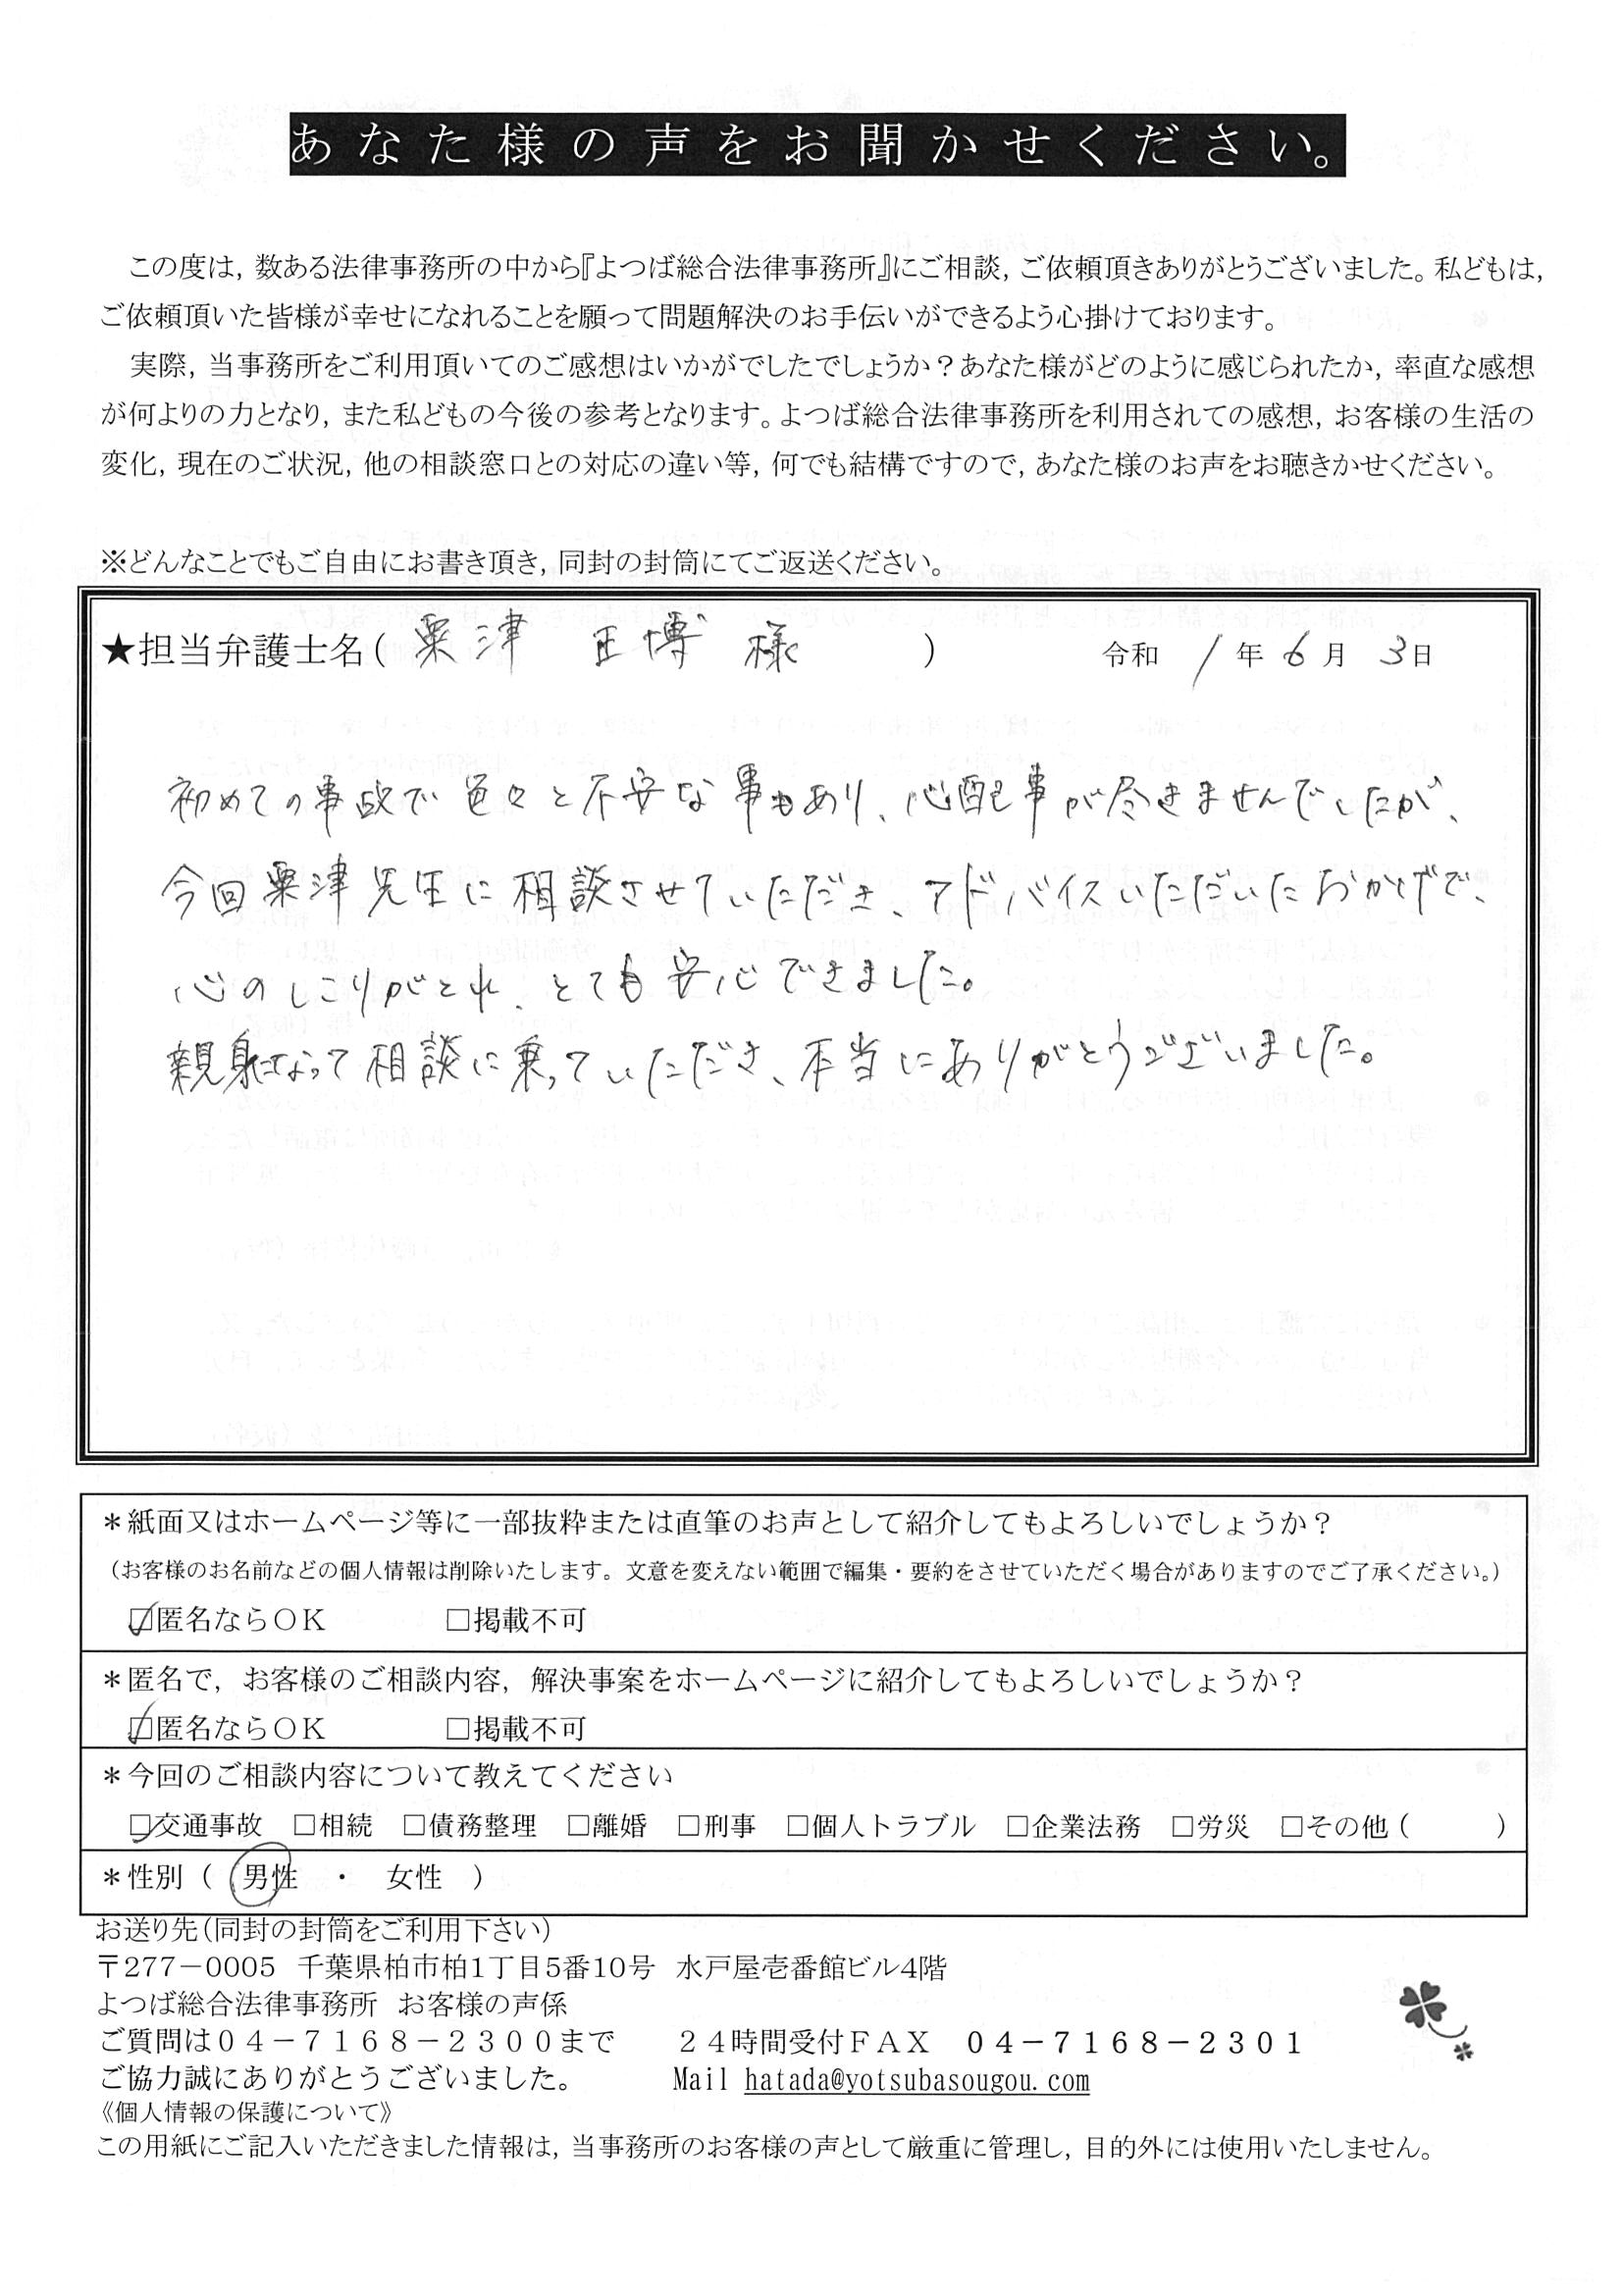 あなた様の声をお聞かせください。
この度は，数ある法律事務所の中から『よつば総合法律事務所』にご相談，ご依頼頂きありがとうございました。私どもは，
ご依頼頂いた皆様が幸せになれることを願って問題解決のお手伝いができるよう心掛けております。
実際，当事務所をご利用頂いてのご感想はいかがでしたでしょうか？あなた様がどのように感じられたか，率直な感想
が何よりの力となり，また私どもの今後の参考となります。よつば総合法律事務所を利用されての感想，お客様の生活の
変化，現在のご状況，他の相談窓口との対応の違い等，何でも結構ですので，あなた様のお声をお聴きかせください。
※どんなことでもご自由にお書き頂き，同封の封筒にてご返送ください。
★担当弁護士名（ 粟津 正博 様 ） 令和 1 年 6 月 3 日
初めての事故で色々と不安な事もあり、心配事が尽きませんでしたが、
今回粟津先生に相談させていただき、アドバイスいただいたおかげで、
心のしこりがとれ、とても安心できました。
親身になって相談に乗っていただき、本当にありがとうございました。
＊紙面又はホームページ等に一部抜粋または直筆のお声として紹介してもよろしいでしょうか？
（お客様のお名前などの個人情報は削除いたします。文意を変えない範囲で編集・要約をさせていただく場合がありますのでご了承ください。）
☑匿名ならＯＫ □掲載不可
＊匿名で，お客様のご相談内容，解決事案をホームページに紹介してもよろしいでしょうか？
☑匿名ならＯＫ □掲載不可
＊今回のご相談内容について教えてください
☑交通事故 □相続 □債務整理 □離婚 □刑事 □個人トラブル □企業法務 □労災 □その他（ ）
＊性別（ 男性 ・ 女性 ）
お送り先（同封の封筒をご利用下さい）
〒277－0005 千葉県柏市柏1丁目5番10号 水戸屋壱番館ビル4階
よつば総合法律事務所 お客様の声係
ご質問は０４－７１６８－２３００まで ２４時間受付ＦＡＸ ０４－７１６８－２３０１
ご協力誠にありがとうございました。 Mail hatada@yotsubasougou.com
《個人情報の保護について》
この用紙にご記入いただきました情報は，当事務所のお客様の声として厳重に管理し，目的外には使用いたしません。